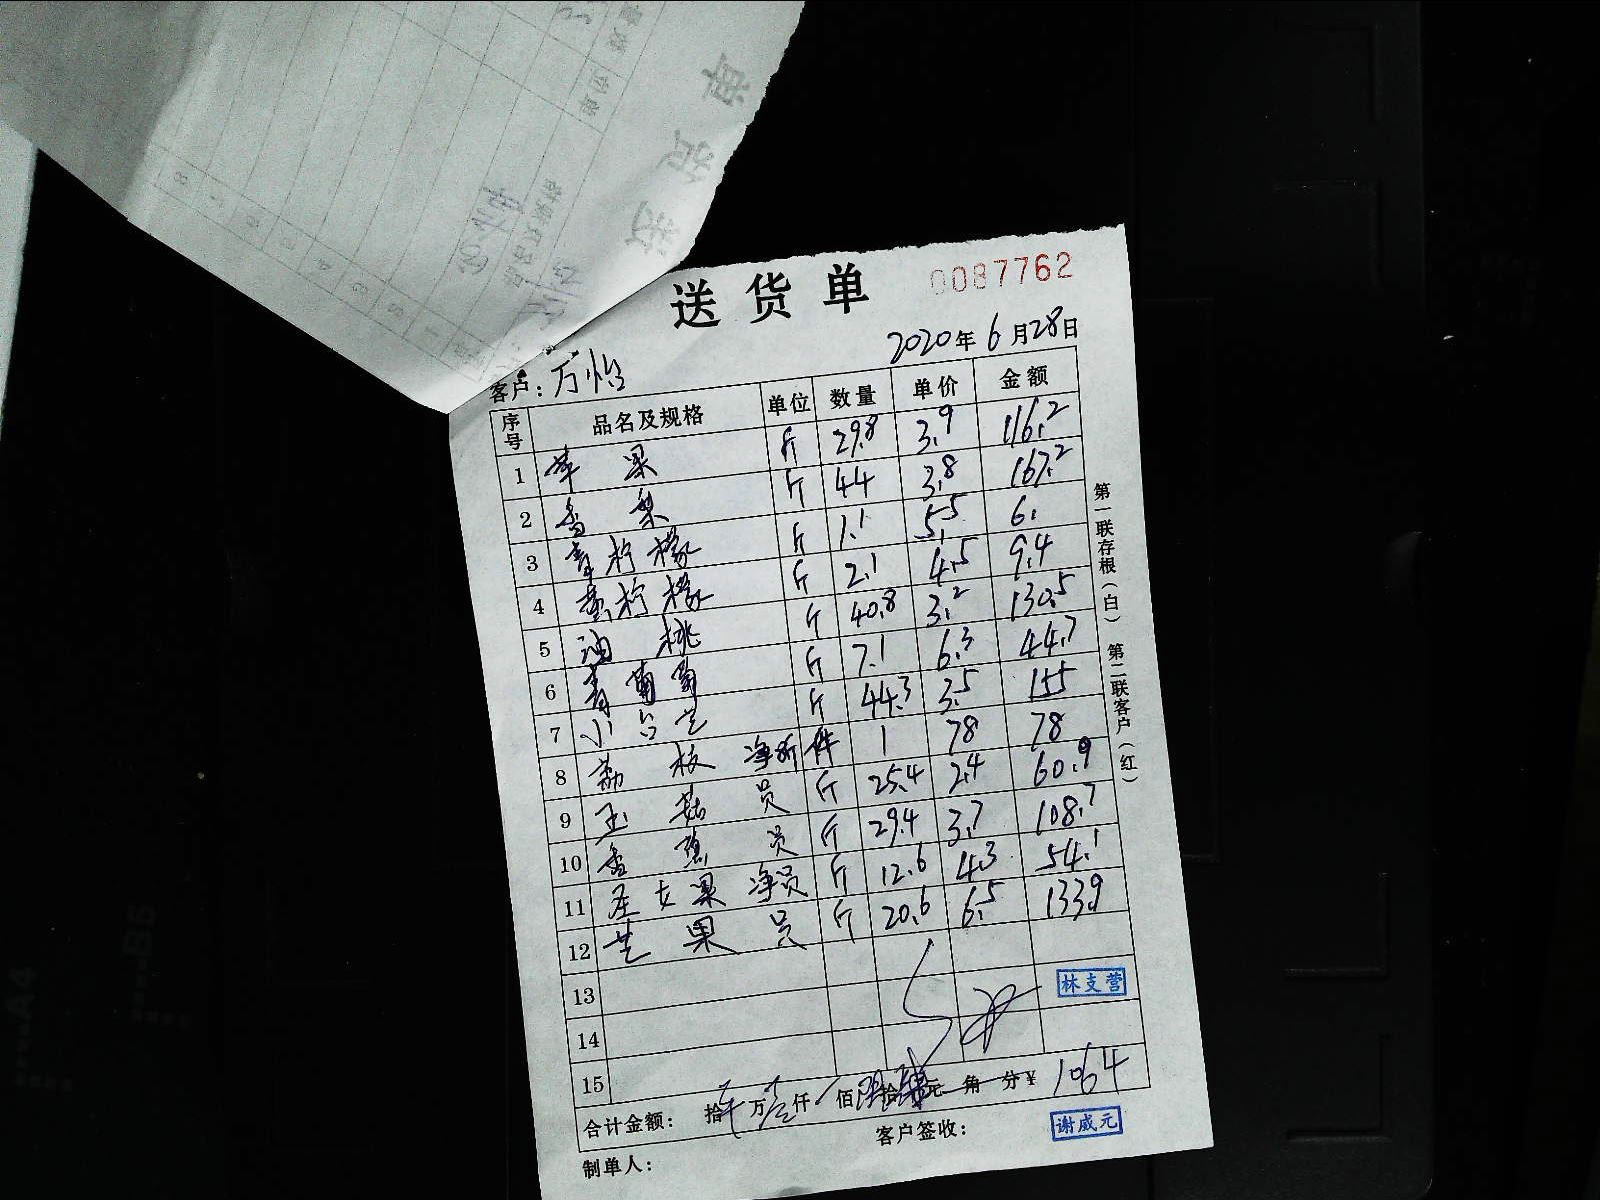 送货单 0087762
2020年6月28日
客户：万怡
序号 品名及规格 单位 数量 单价 金额
1 苹果 斤 29.8 3.9 116.2
2 香梨 斤 44 3.8 167.2
3 青柠檬 斤 1.1 5.5 6.
4 黄柠檬 斤 2.1 4.5 9.4
5 油桃 斤 40.8 3.2 130.5
6 青葡萄 斤 7.1 6.3 44.7
7 小台芒 斤 44.3 3.5 155
8 荔枝 件 1 78 78
9 玉菇 斤 25.4 2.4 60.9
10 香蕉 斤 29.4 3.7 108.7
11 圣女果 净 斤 12.6 4.3 54.1
12 芒果 斤 20.6 6.5 133.9
13
林支营
14
15
合计金额： 拾 万 仟 佰 拾 元 角 分 ¥ 1064
客户签收： 谢威元
制单人：
第一联存根（白） 第二联客户（红）
A4
B5